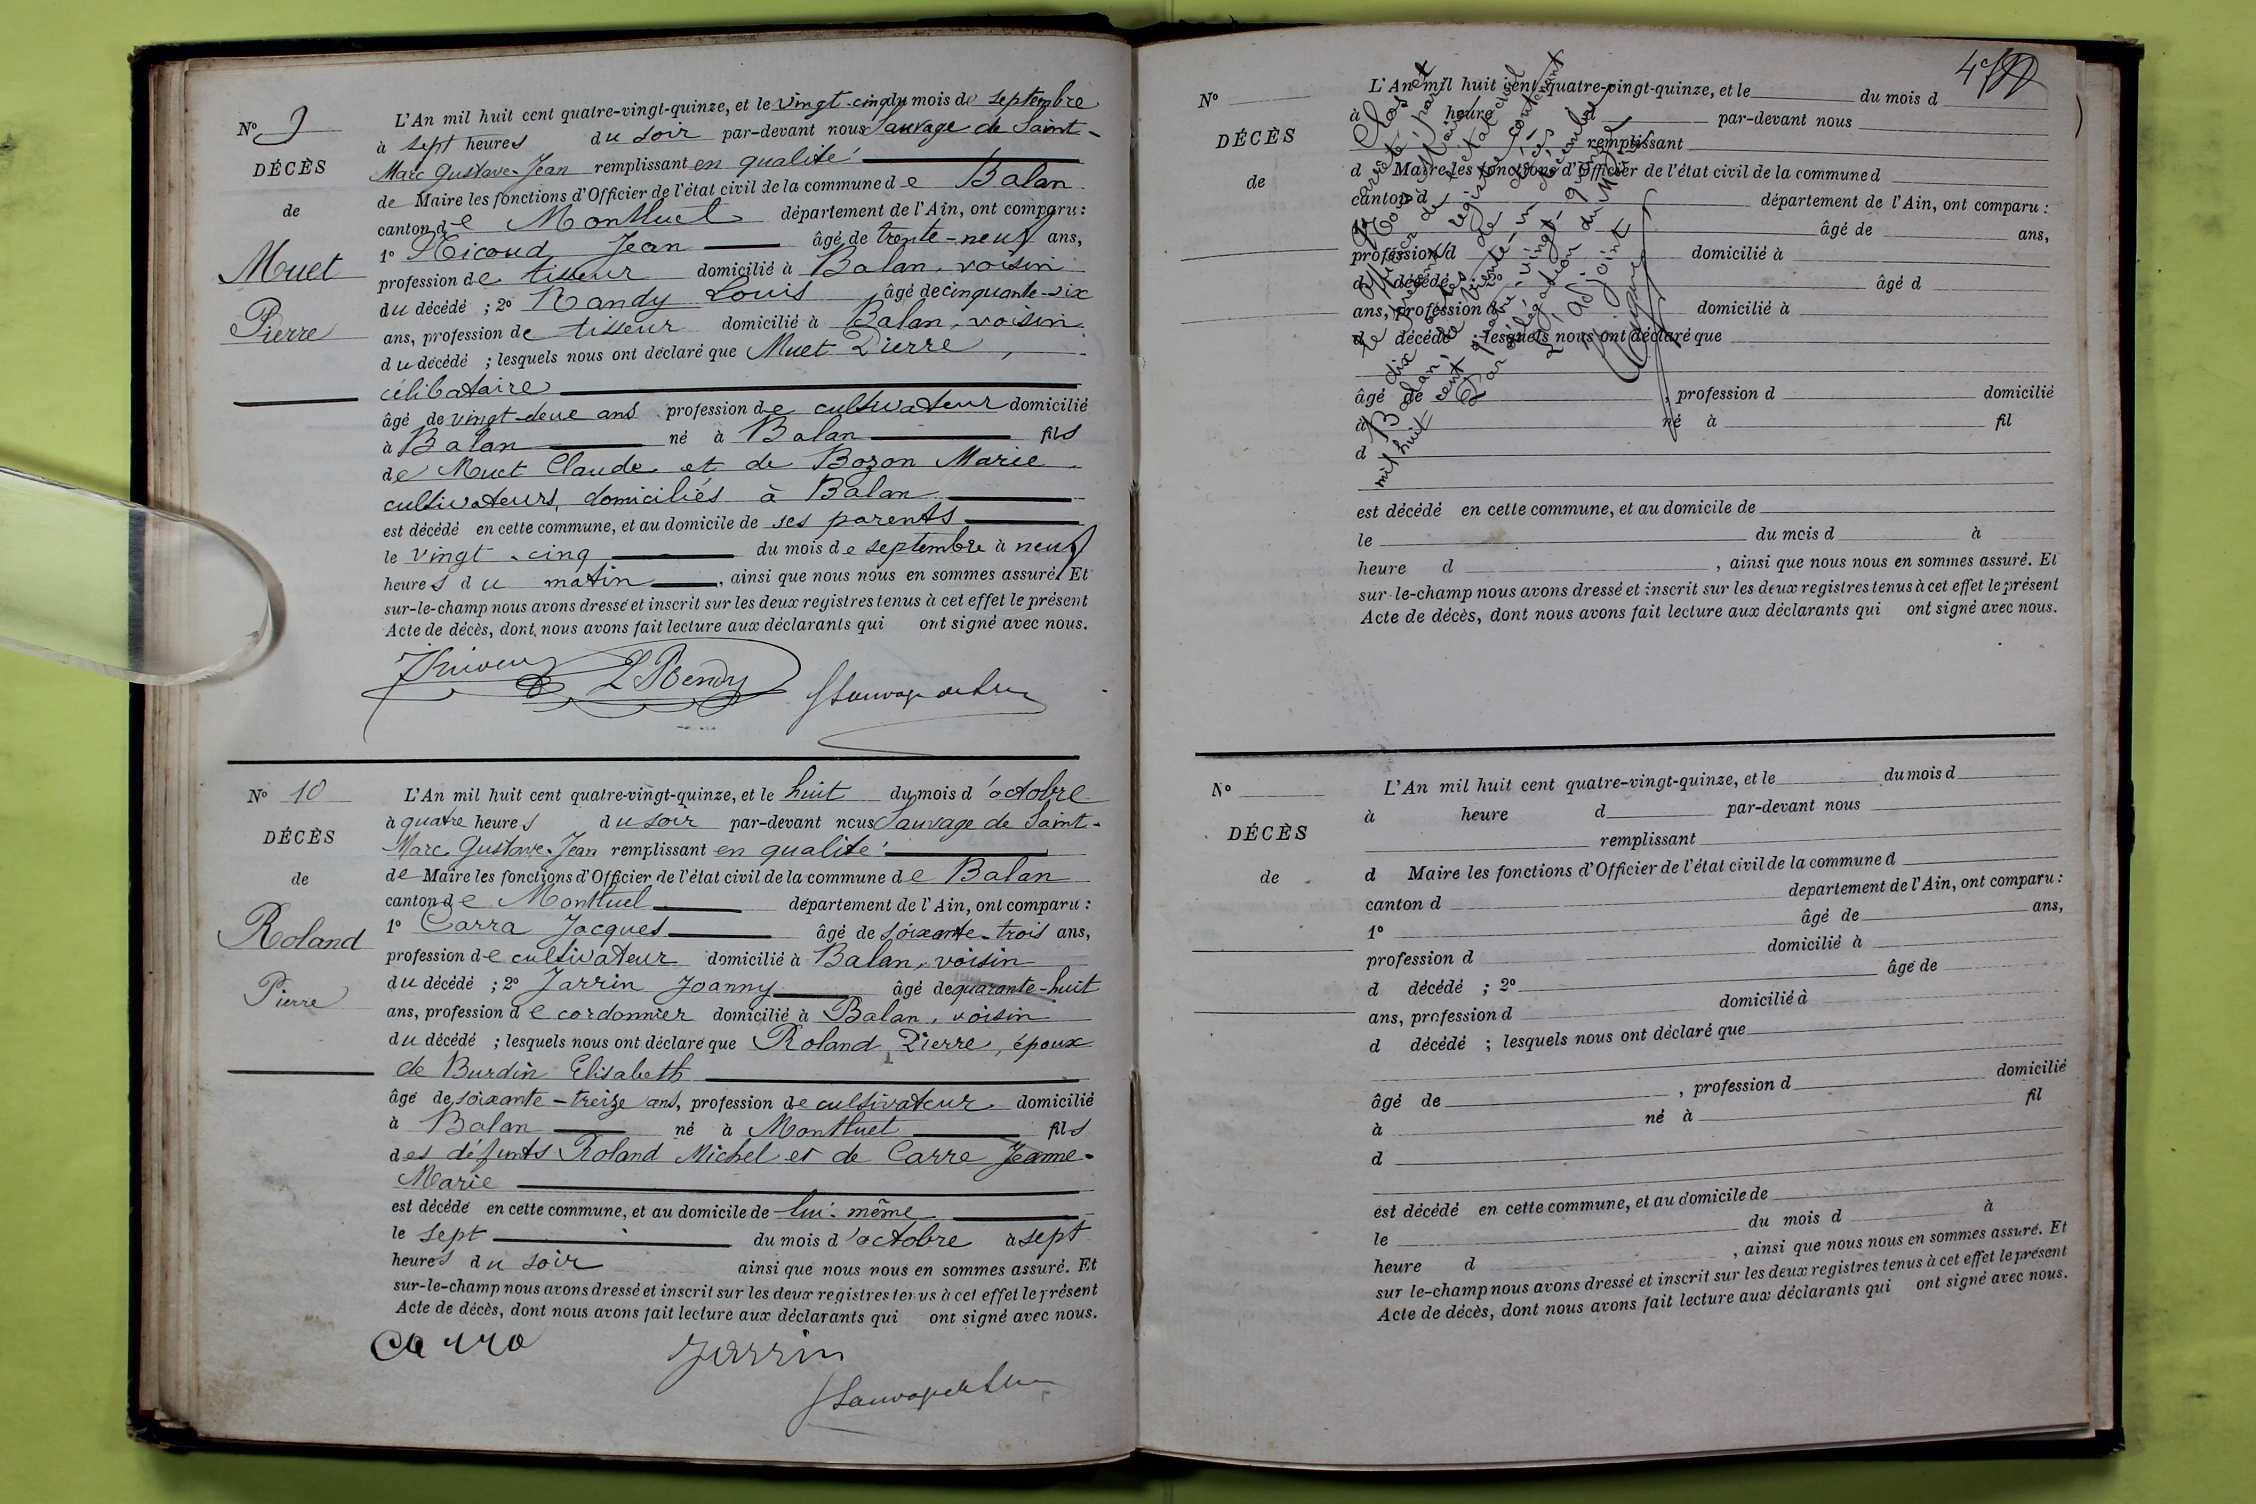 Nº 9
DÉCÈS
de
Muet
Pierre
L'An mil huit cent quatre-vingt-quinze, et le vingt-cinq du mois de septembre
à sept heures du soir par-devant nous Sauvage de Saint-
Marc Gustave-Jean remplissant en qualité
de Maire les fonctions d'Officier de l'état civil de la commune de Balan
canton de Montluel département de l'Ain, ont comparu :
1º Jean âgé de trente-neuf ans,
profession de tisseur domicilié à Balan, voisin
du décédé ; 2º Randy Louis âgé de cinquante-six
ans, profession de tisseur domicilié à Balan, voisin
du décédé ; lesquels nous ont déclaré que Muet Pierre,
célibataire
âgé de vingt-deux ans profession de cultivateur domicilié
à Balan né à Balan fils
de Muet Claude et de Bozon Marie
cultivateurs, domiciliés à Balan
est décédé en cette commune, et au domicile de ses parents
le vingt-cinq du mois de septembre à neuf
heures du matin, ainsi que nous nous en sommes assuré. Et
sur-le-champ nous avons dressé et inscrit sur les deux registres tenus à cet effet le présent
Acte de décès, dont nous avons fait lecture aux déclarants qui ont signé avec nous.
L Rendy
Nº 10
DÉCÈS
de
Roland
Pierre
L'An mil huit cent quatre-vingt-quinze, et le huit du mois d'octobre
à quatre heures du soir par-devant nous Sauvage de Saint-
Marc Gustave-Jean remplissant en qualité
de Maire les fonctions d'Officier de l'état civil de la commune de Balan
canton de Montluel département de l'Ain, ont comparu :
1º Carra Jacques âgé de soixante-trois ans,
profession de cultivateur domicilié à Balan, voisin
du décédé ; 2º Jarrin Joanny âgé de quarante-huit
ans, profession de cordonnier domicilié à Balan, voisin
du décédé ; lesquels nous ont déclaré que Roland Pierre, époux
de Burdin Elisabeth
âgé de soixante-treize ans, profession de cultivateur domicilié
à Balan né à Montluel fils
des défunts Roland Michel et de Carre Jeanne-
Marie
est décédé en cette commune, et au domicile de lui-même
le sept du mois d'octobre à sept
heures du soir ainsi que nous nous en sommes assuré. Et
sur-le-champ nous avons dressé et inscrit sur les deux registres tenus à cet effet le présent
Acte de décès, dont nous avons fait lecture aux déclarants qui ont signé avec nous.
Carra
Jarrin
Nº
DÉCÈS
de
L'An mil huit cent quatre-vingt-quinze, et le du mois d
à heure d par-devant nous
remplissant
d Maire les fonctions d'Officier de l'état civil de la commune d
canton d département de l'Ain, ont comparu :
âgé de ans,
profession d domicilié à
d décédé ; 2º âgé d
ans, profession d domicilié à
d décédé ; lesquels nous ont déclaré que
âgé de , profession d domicilié
à né à fil
d
est décédé en cette commune, et au domicile de
le du mois d à
heure d , ainsi que nous nous en sommes assuré. Et
sur-le-champ nous avons dressé et inscrit sur les deux registres tenus à cet effet le présent
Acte de décès, dont nous avons fait lecture aux déclarants qui ont signé avec nous.
Clos et
arrêté par
Nous Maire
le présent registre contenant
dix actes de décès
Balan le trente-un décembre
mil huit cent quatre-vingt-quinze
Par délégation du Maire
L'adjoint
Nº
DÉCÈS
de
L'An mil huit cent quatre-vingt-quinze, et le du mois d
à heure d par-devant nous
remplissant
d Maire les fonctions d'Officier de l'état civil de la commune d
canton d département de l'Ain, ont comparu :
1º âgé de ans,
profession d domicilié à
d décédé ; 2º âgé de
ans, profession d domicilié à
d décédé ; lesquels nous ont déclaré que
âgé de , profession d domicilié
à né à fil
d
est décédé en cette commune, et au domicile de
le du mois d à
heure d , ainsi que nous nous en sommes assuré. Et
sur le-champ nous avons dressé et inscrit sur les deux registres tenus à cet effet le présent
Acte de décès, dont nous avons fait lecture aux déclarants qui ont signé avec nous.